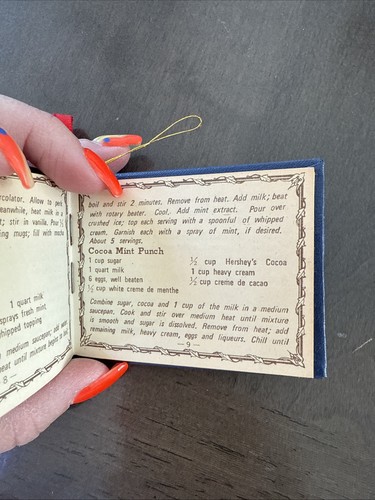 rcolator. Allow to perc
eanwhile, heat milk in a
t; stir in vanilla. Pour ½
ing mugs; fill with mocha
1 quart milk
sprays fresh mint
whipped topping
medium saucepan; add
heat until mixture begins to
— 8 —
boil and stir 2 minutes. Remove from heat. Add milk; beat
with rotary beater. Cool. Add mint extract. Pour over
crushed ice; top each serving with a spoonful of whipped
cream. Garnish each with a spray of mint, if desired.
About 5 servings.
Cocoa Mint Punch
1 cup sugar ½ cup Hershey's Cocoa
1 quart milk 1 cup heavy cream
6 eggs, well beaten ½ cup creme de cacao
½ cup white creme de menthe
Combine sugar, cocoa and 1 cup of the milk in a medium
saucepan. Cook and stir over medium heat until mixture
is smooth and sugar is dissolved. Remove from heat; add
remaining milk, heavy cream, eggs and liqueurs. Chill until
— 9 —